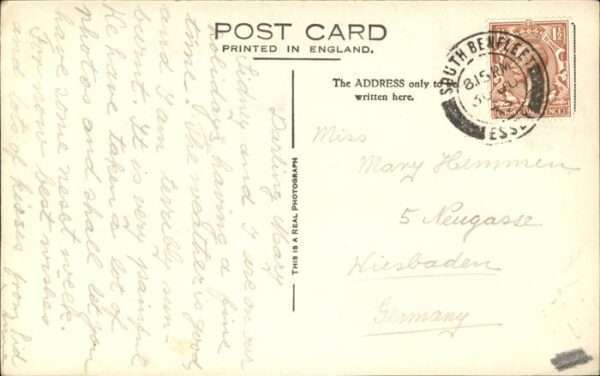 POST CARD
PRINTED IN ENGLAND.
The ADDRESS only to be
written here.
THIS IS A REAL PHOTOGRAPH
SOUTH BENFLEET
8 15 PM
ESSEX
1½
Darling Mary
Sidney and I are on our
holidays having a fine
time. The weather is good
and I am terribly sun-
burnt. It is very painful
We have taken a lot of
photos and shall let you
have some next week.
For now best wishes
and lots of kisses from Sid
Miss
Mary Hemmen
5 Neugasse
Wiesbaden
Germany